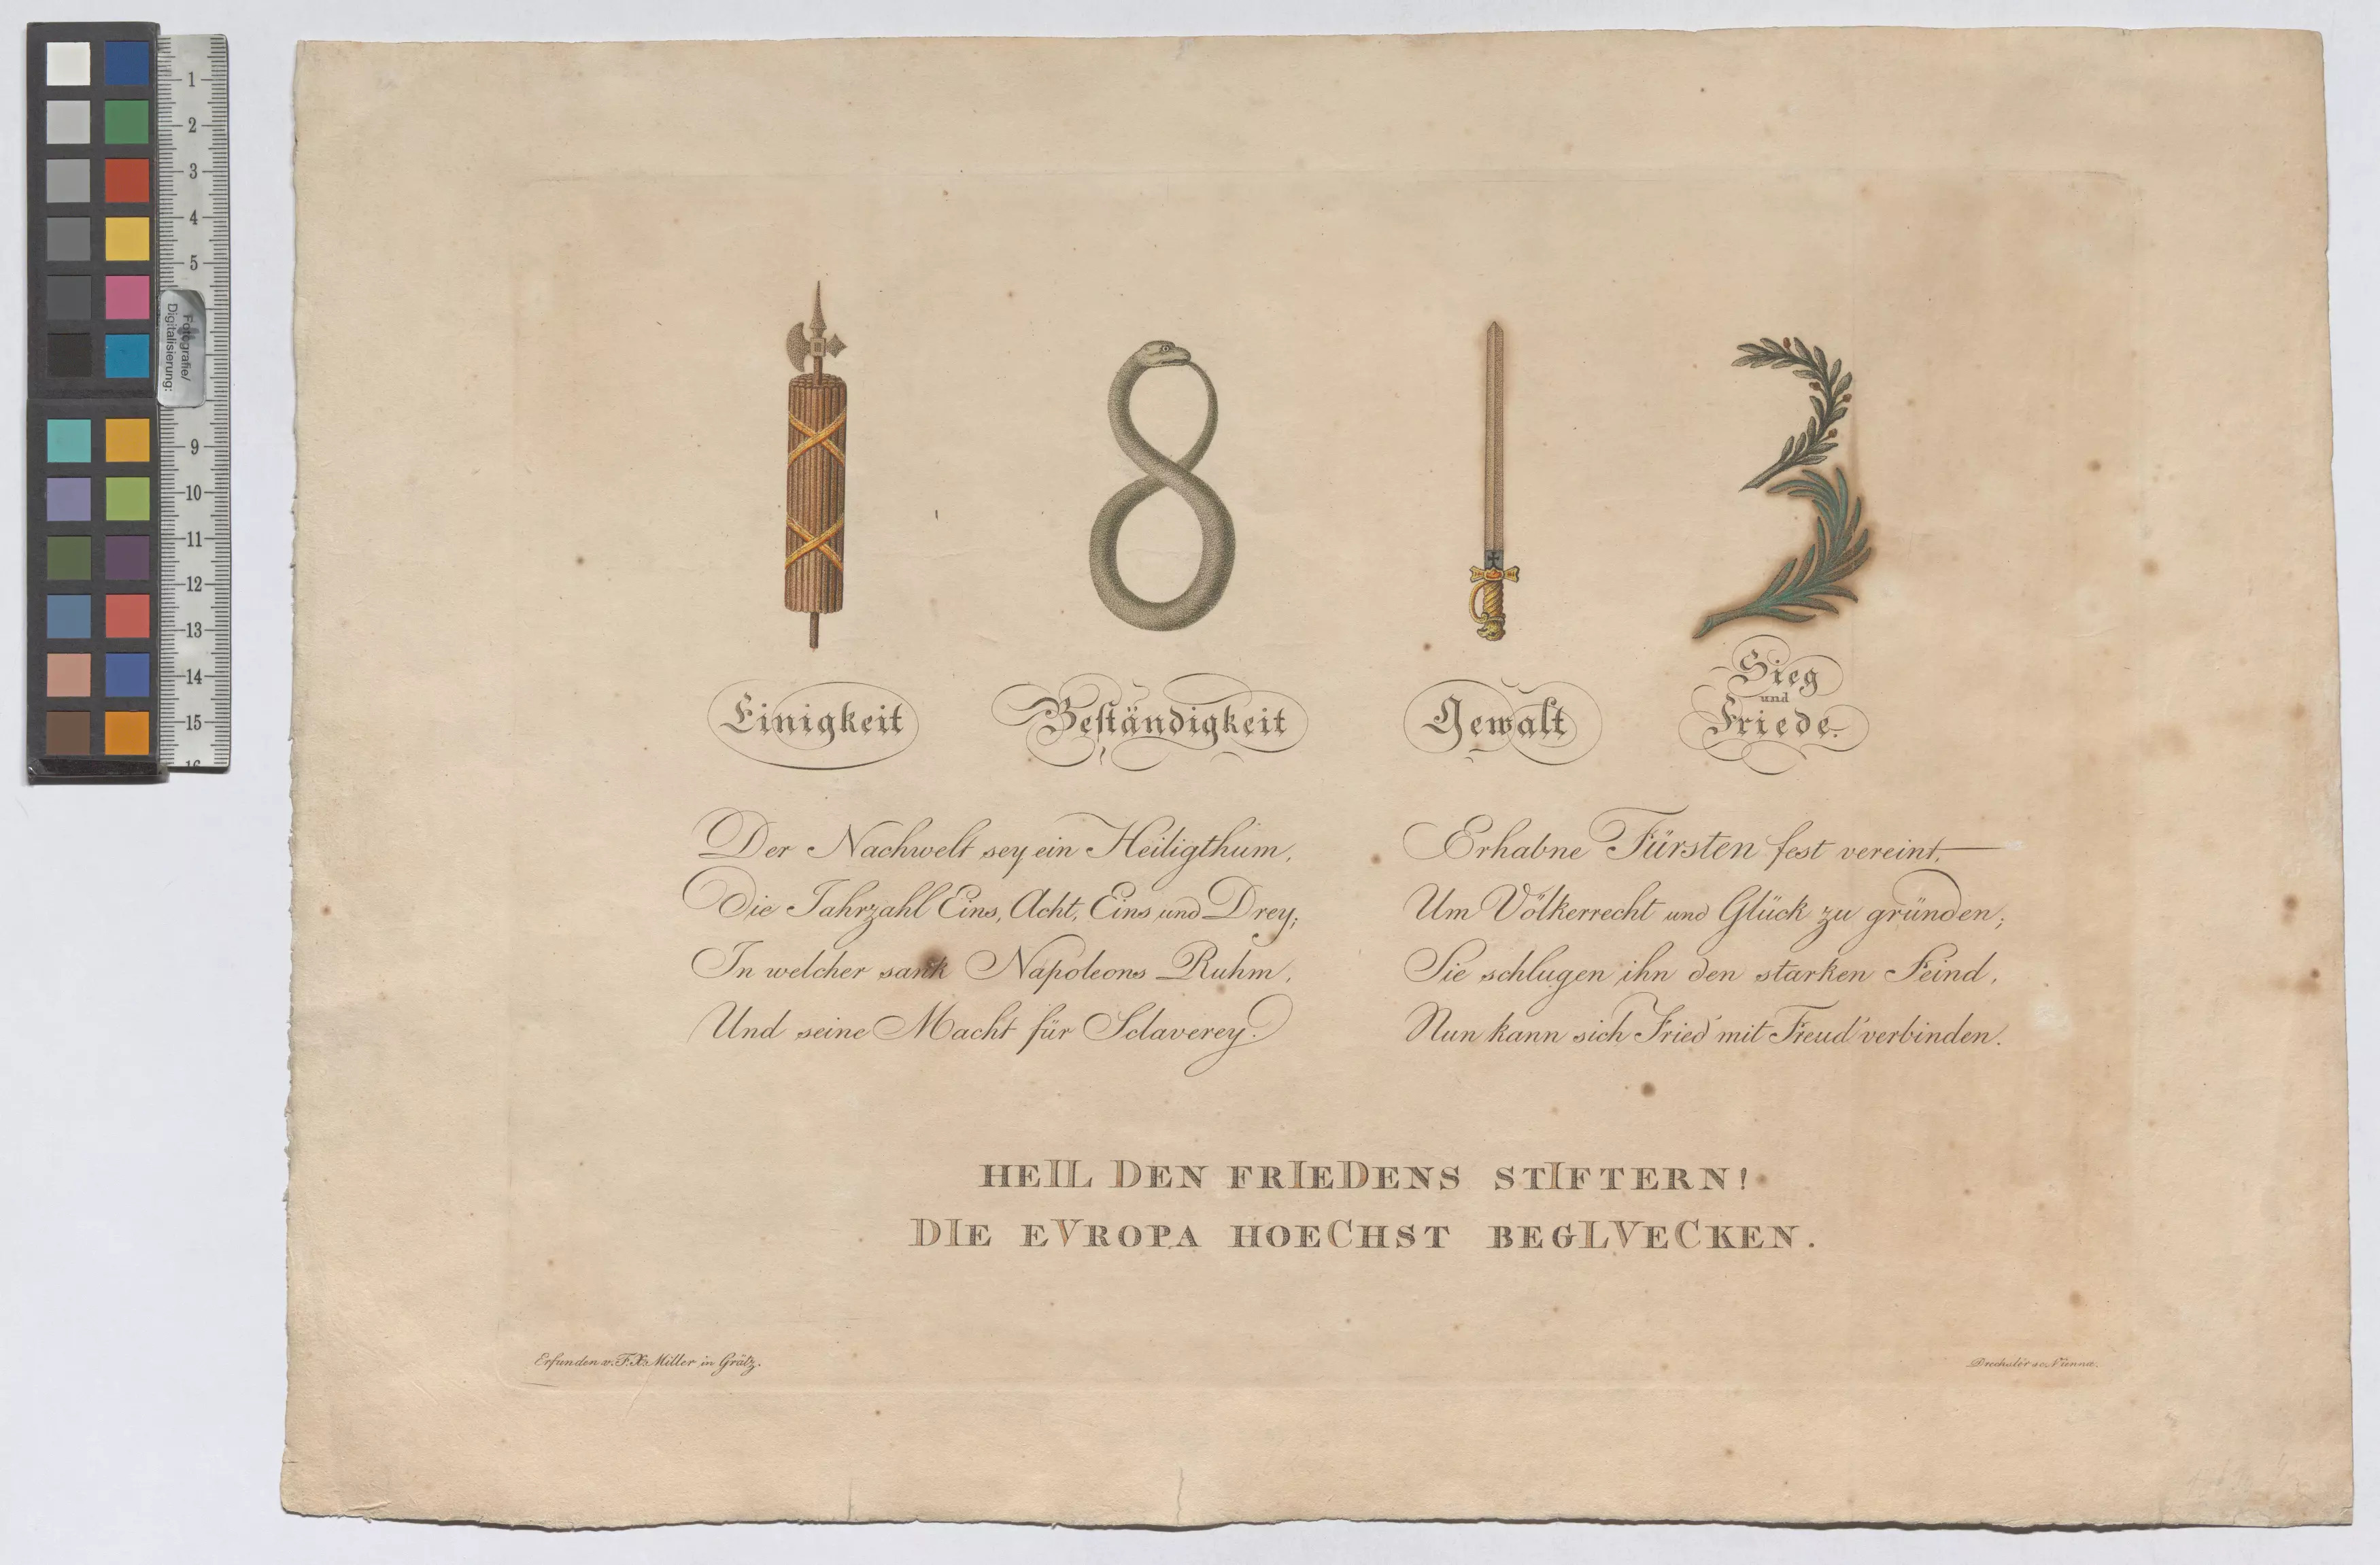 1
2
3
4
5
Fotografie/
Digitalisierung:
9
10
11
12
13
14
15
16
1 8 1 3
Einigkeit
Beständigkeit
Gewalt
Sieg
und
Friede.
Der Nachwelt sey ein Heiligthum,
Die Jahrzahl Eins, Acht, Eins und Drey;
In welcher sank Napoleons Ruhm,
Und seine Macht für Sclaverey.
Erhabne Fürsten fest vereint,
Um Völkerrecht und Glück zu gründen;
Sie schlugen ihn den starken Feind,
Nun kann sich Fried' mit Freud' verbinden.
HEIL DEN FRIEDENS STIFTERN!
DIE EVROPA HOECHST BEGLVECKEN.
Erfunden v. F. X. Miller in Grätz.
Drechsler sc. Viennæ.